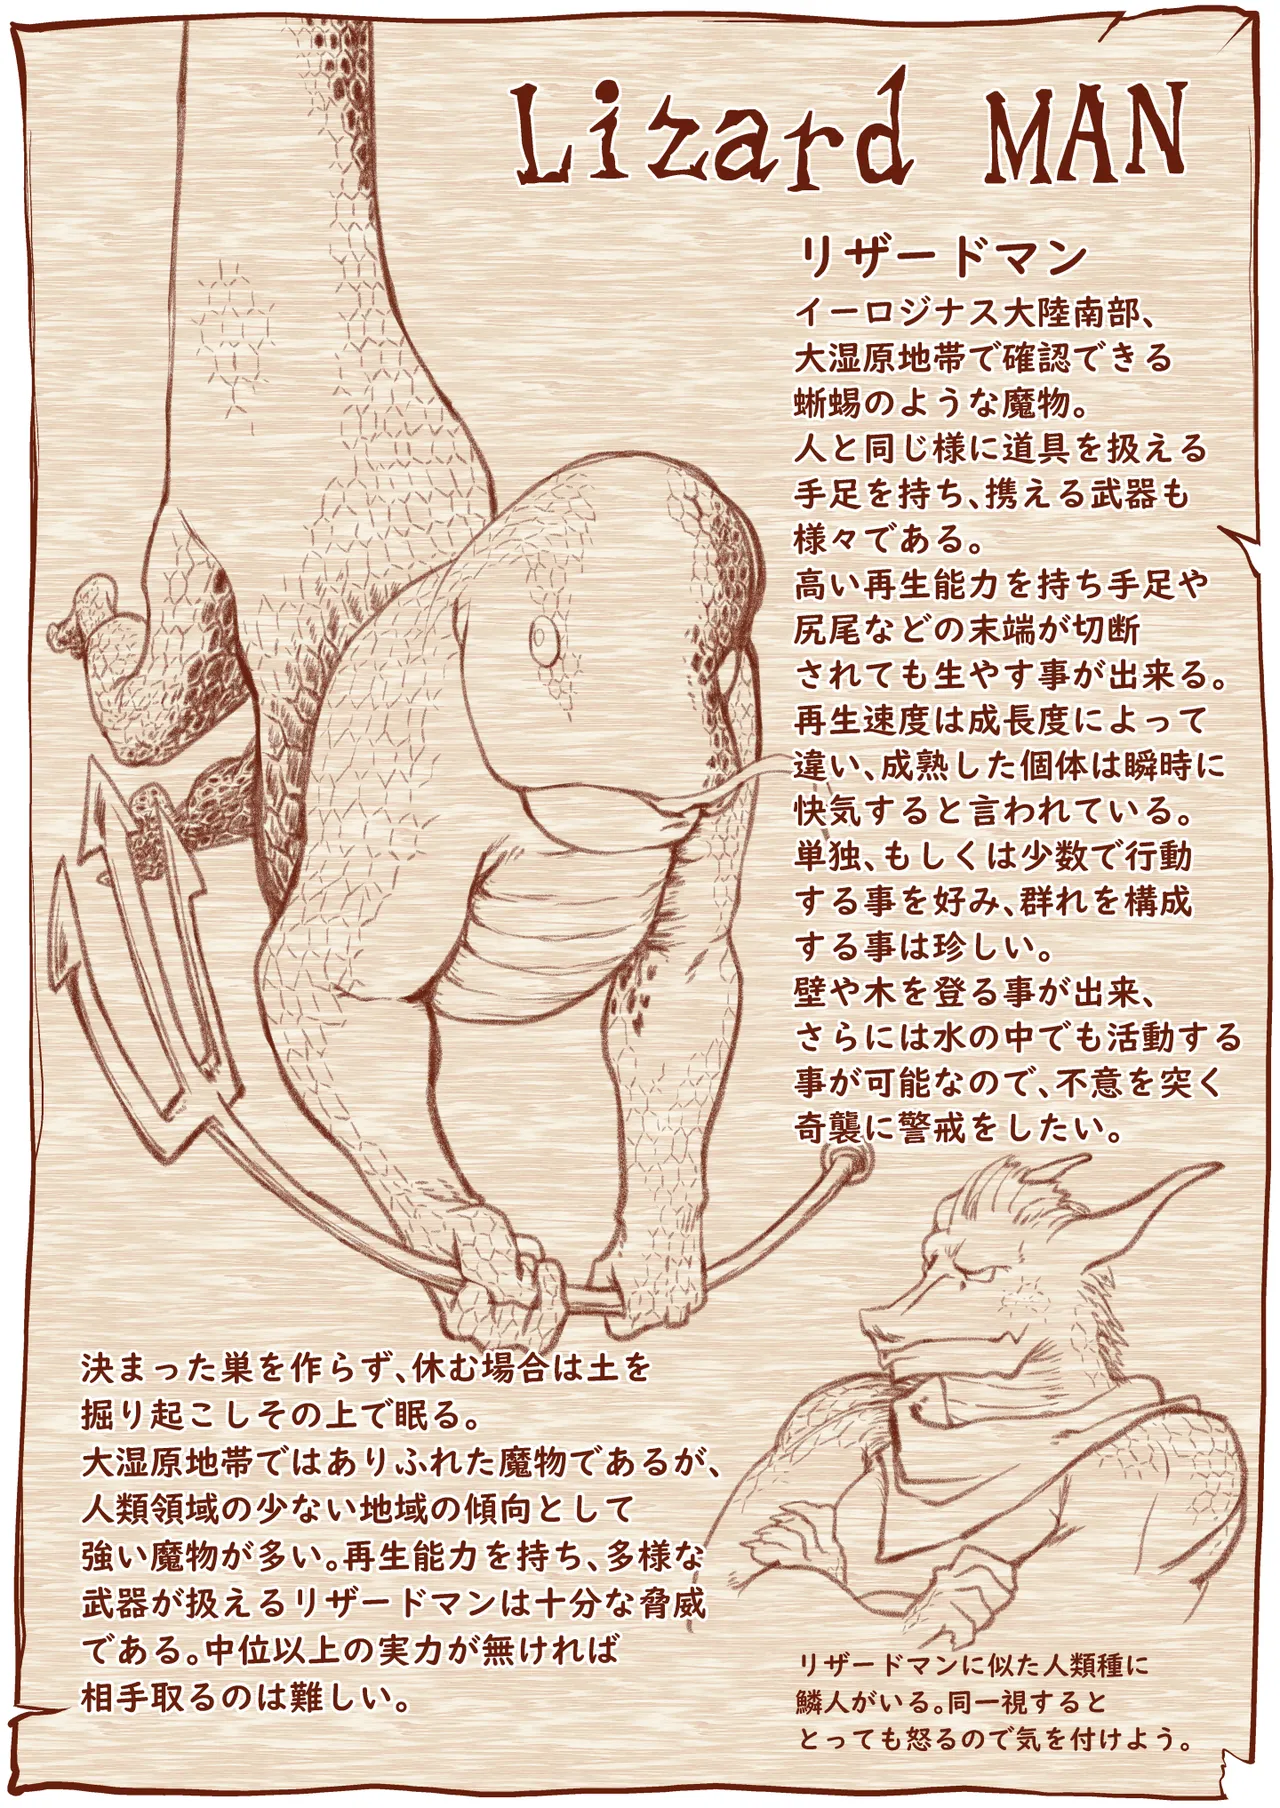 Lizard MAN
リザードマン
イーロジナス大陸南部、
大湿原地帯で確認できる
蜥蜴のような魔物。
人と同じ様に道具を扱える
手足を持ち、携える武器も
様々である。
高い再生能力を持ち手足や
尻尾などの末端が切断
されても生やす事が出来る。
再生速度は成長度によって
違い、成熟した個体は瞬時に
快気すると言われている。
単独、もしくは少数で行動
する事を好み、群れを構成
する事は珍しい。
壁や木を登る事が出来、
さらには水の中でも活動する
事が可能なので、不意を突く
奇襲に警戒をしたい。
決まった巣を作らず、休む場合は土を
掘り起こしその上で眠る。
大湿原地帯ではありふれた魔物であるが、
人類領域の少ない地域の傾向として
強い魔物が多い。再生能力を持ち、多様な
武器が扱えるリザードマンは十分な脅威
である。中位以上の実力が無ければ
相手取るのは難しい。
リザードマンに似た人類種に
鱗人がいる。同一視すると
とっても怒るので気を付けよう。